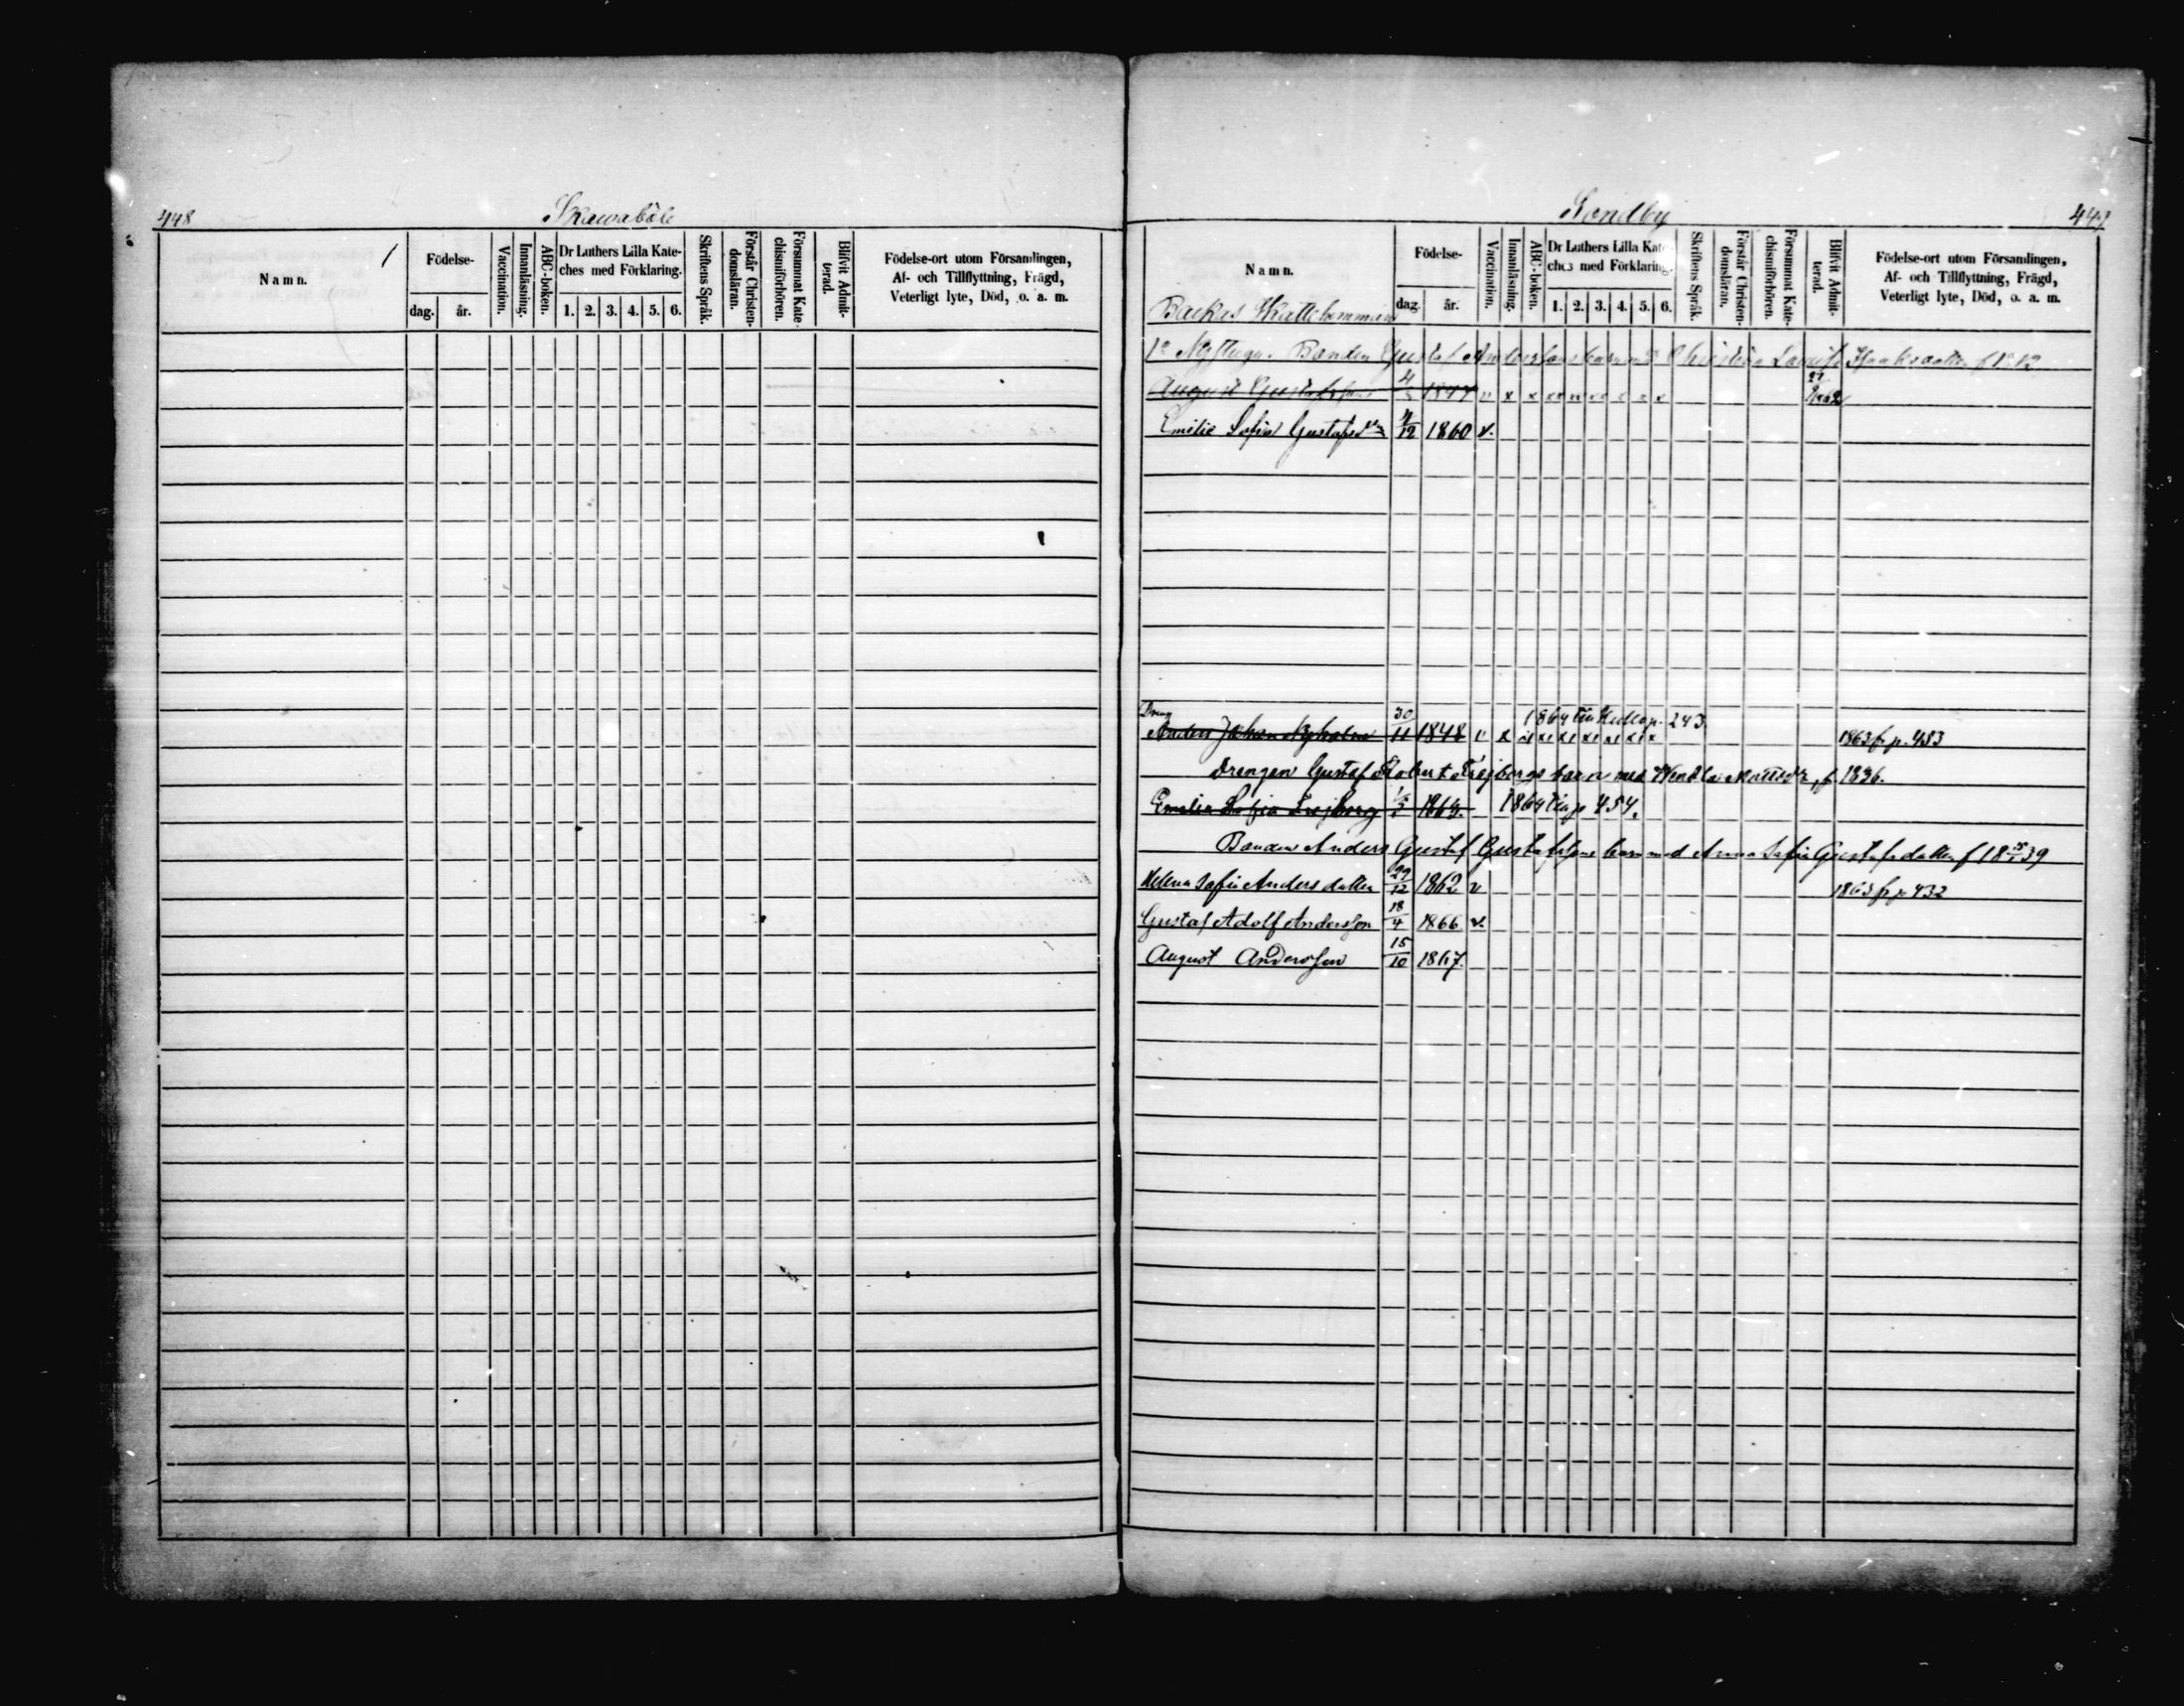 448 Skawaböle
Namn. Födelse- dag. år. Vaccination. Innanläsning. ABC-boken. Dr Luthers Lilla Kateches med Förklaring. 1. 2. 3. 4. 5. 6. Skriftens Språk. Förstår Christendomsläran. Försummat Katechismiförhören. Blifvit Admitterad. Födelse-ort utom Församlingen, Af- och Tillflyttning, Frägd, Veterligt lyte, Död, o. a. m.
Sondby
Namn. Födelse- dag. år. Vaccination. Innanläsning. ABC-boken. Dr Luthers Lilla Kateches med Förklaring. 1. 2. 3. 4. 5. 6. Skriftens Språk. Förstår Christendomsläran. Försummat Katechismiförhören. Blifvit Admitterad. Födelse-ort utom Församlingen, Af- och Tillflyttning, Frägd, Veterligt lyte, Död, o. a. m.
Backas Skattehemman
Bonden Gustaf Anderssons barn med Christina
August Gustafsson v x x
Emilie Sofia Gustafsdr 12 1860 v.
Dreng
1864 till p. 243
Anders Johan Nyholm 30/11 1848 v x 1863 fr p. 483
Drengen Gustaf Robert barn med Wendla Mattsdr, f. 1836.
Emilia Sofia 1864 till p 454.
Bonden Anders Gustaf Gustafssons barn med Anna Sofia Gustafsdotter f 18 39
Helena Sofia Andersdotter 29/12 1862 v 1863 fr p 432
Gustaf Adolf Andersson 18/4 1866 v.
August Andersson 15/10 1867.